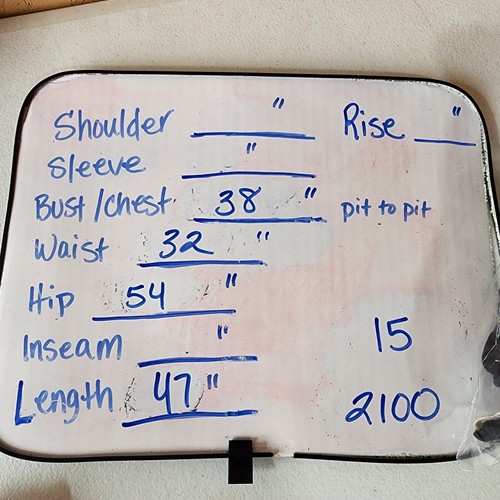 Shoulder ____" Rise ____"
Sleeve ____"
Bust/Chest 38" pit to pit
Waist 32"
Hip 54"
Inseam ____"
15
Length 47"
2100